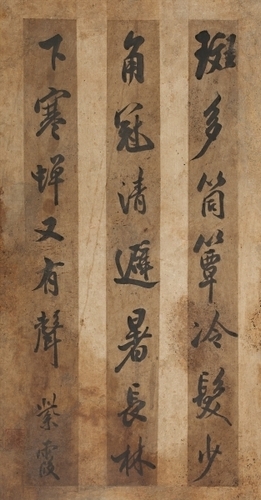 斑多筒簟冷髮少
角冠清避暑長林
下寒蟬又有聲紫霞